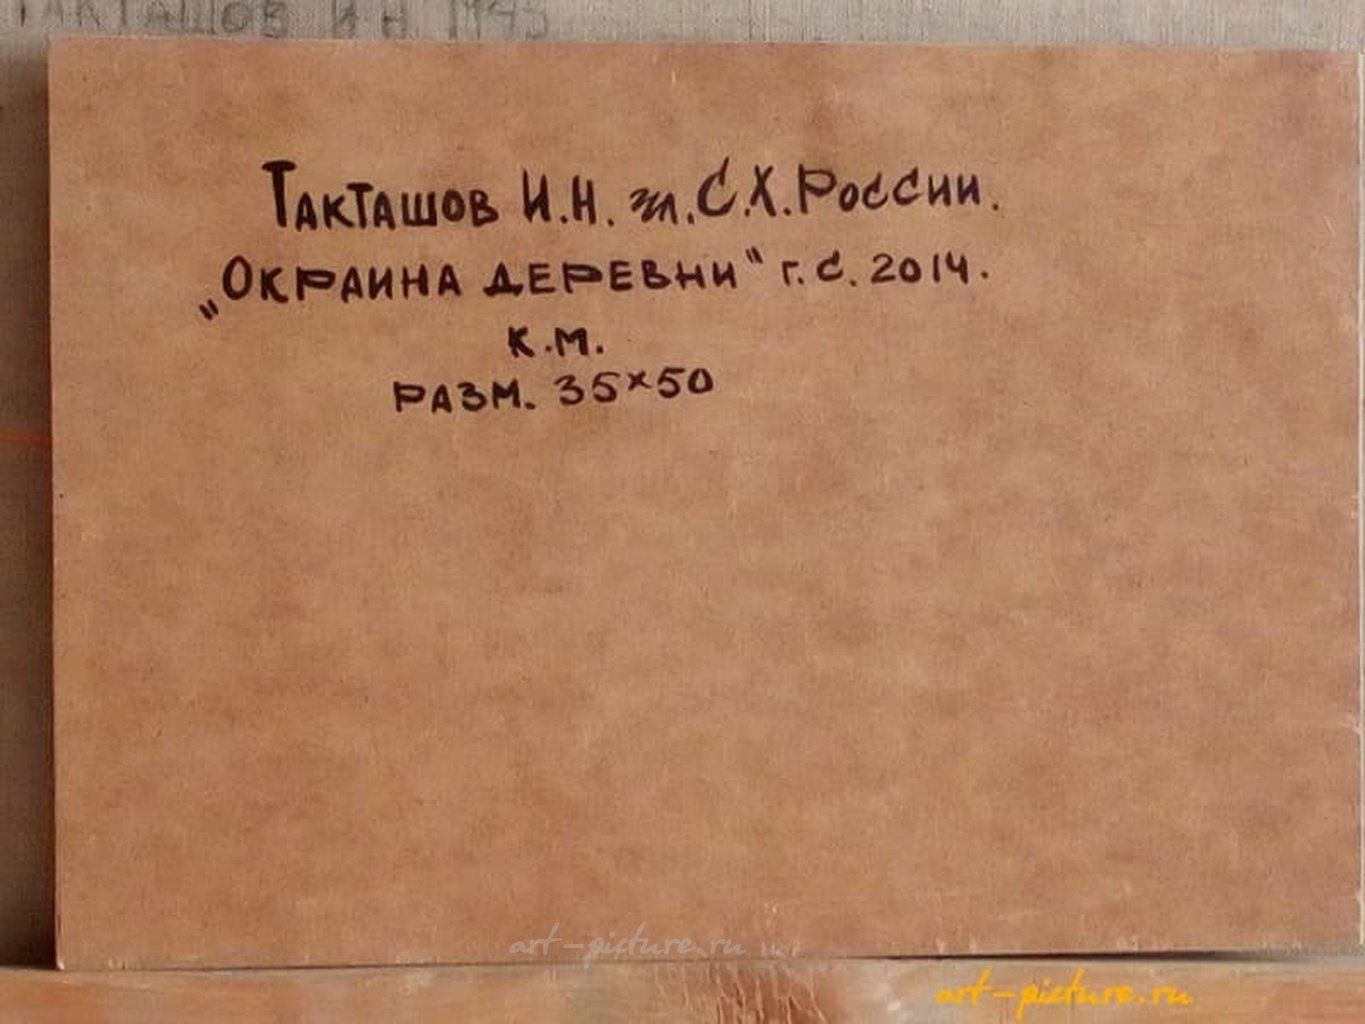 ТАКТАШОВ И Н 1943
ТАКТАШОВ И.Н. чл.С.Х.РОССИИ.
„ОКРАИНА ДЕРЕВНИ" г.С.2014.
К.М.
РАЗМ. 35×50
art-picture.ru
art-picture.ru